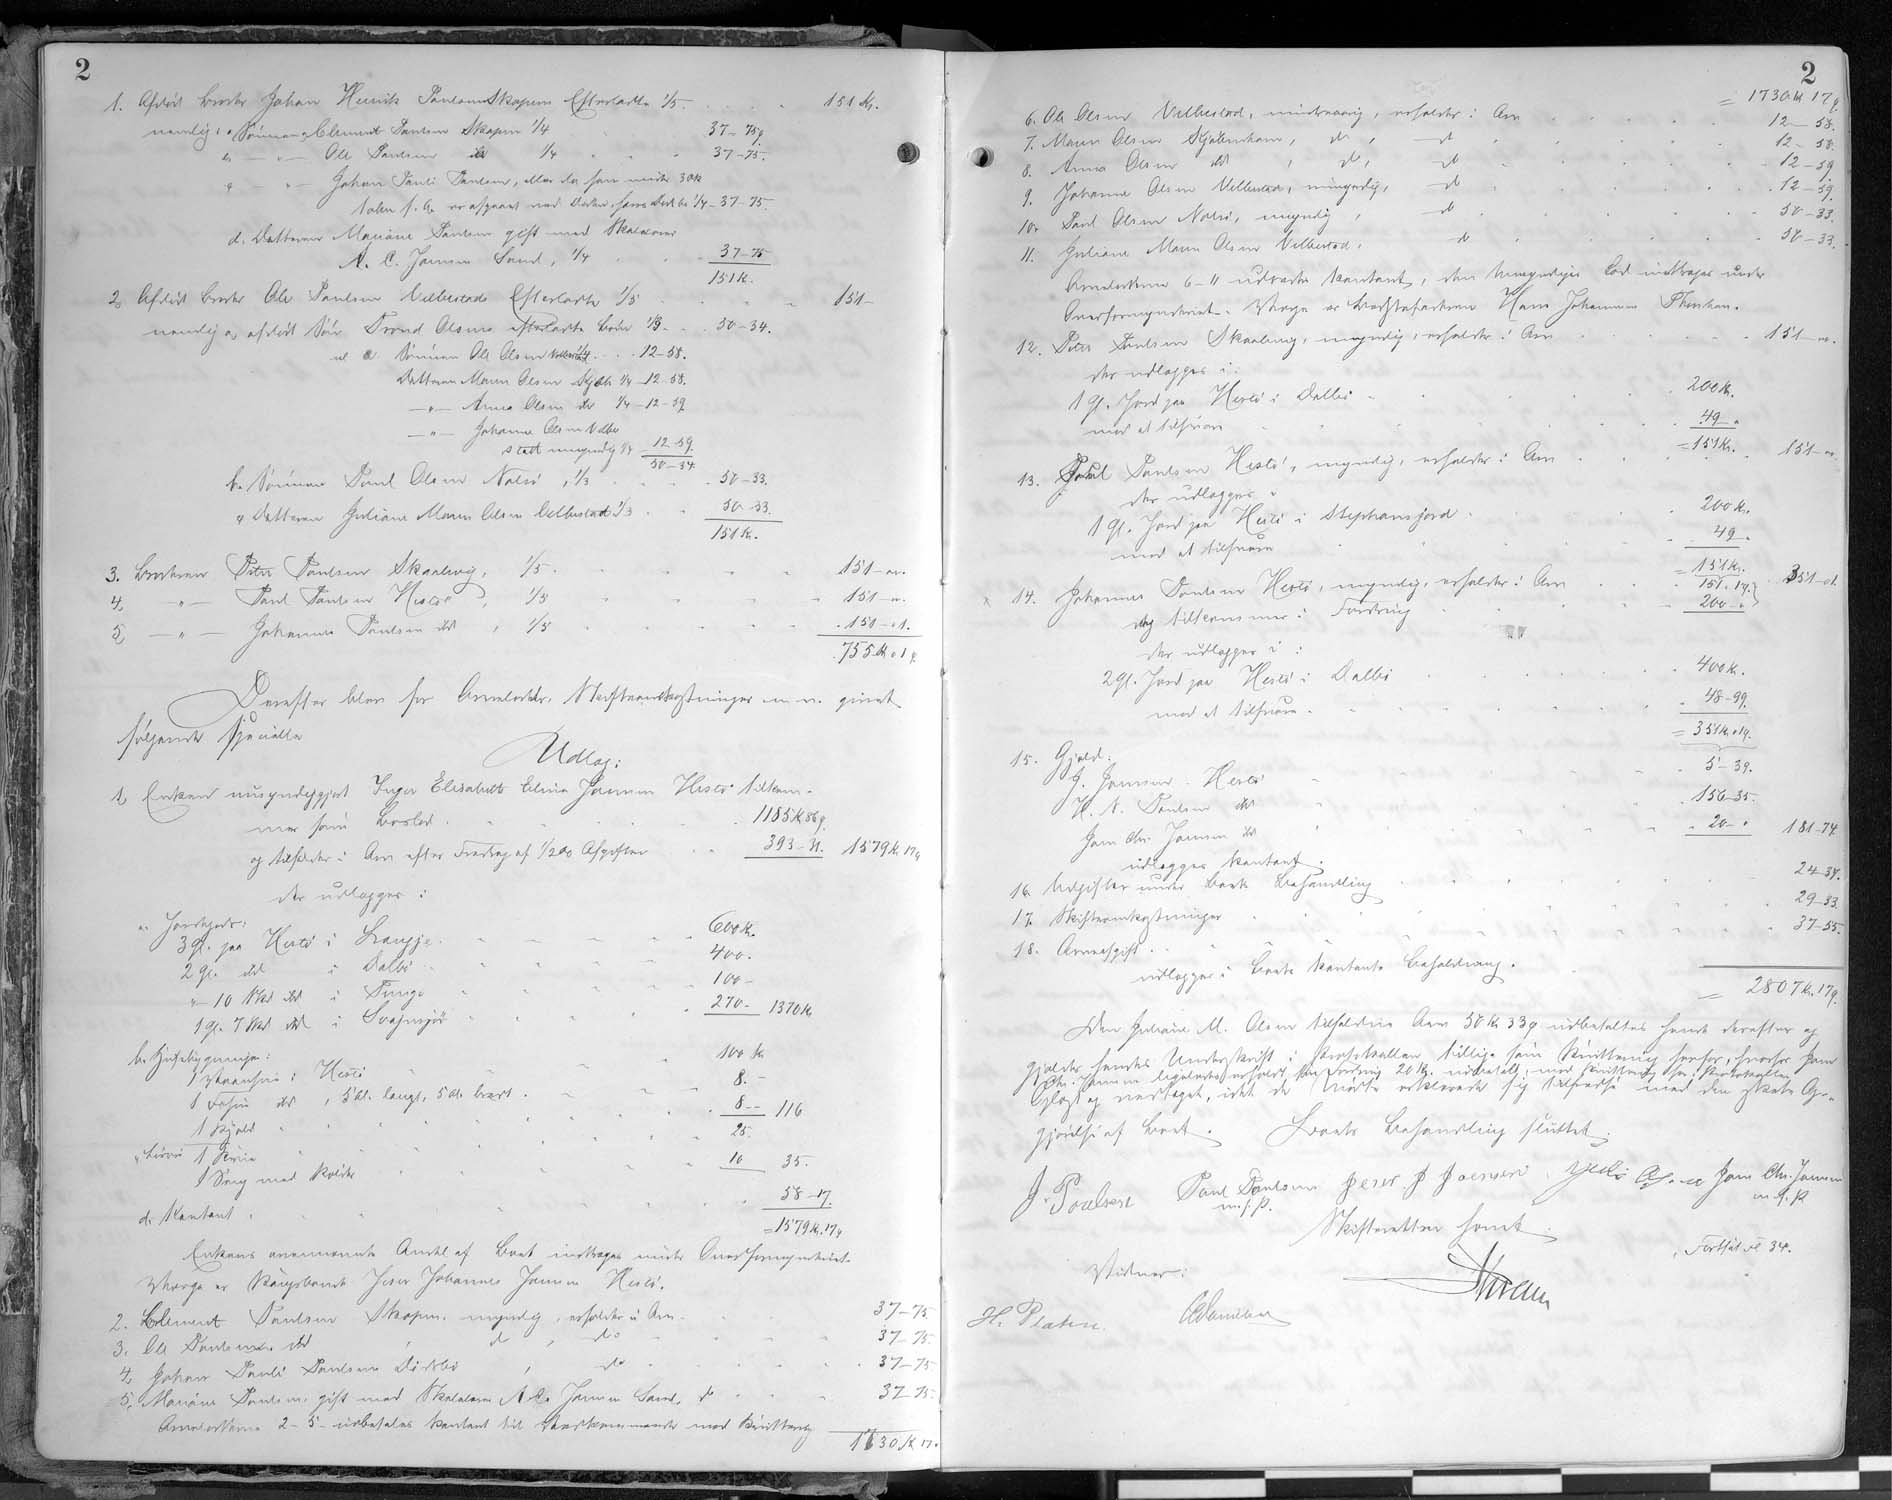 2
1. Afdød Broder Johan Henrik Poulsen Skopun Efterladte 1/5 151 Kr.
nemlig: a. Sønnen Clement Poulsen Skopun 1/4 37-75 ø
b. — " — Ole Poulsen do 1/4 37-75.
c. — " — Johan Pauli Poulsen, 1/4 - 37-75.
d. Datteren Mariane Poulsen gift med Skolelærer
A. C. Jensen Sand, 1/4 37-75
151 K.
2, Afdød Broder Ole Poulsen Velbestad Efterladte 1/5 151-
nemlig a, afdød Søn Trond Olsens efterladte Børn 1/3 50-34.
Sønnen Ole Olsen Velbestad 1/4 12-58.
Datteren Maren Olsen 1/4 - 12-58.
— " — Anna Olsen do 1/4 - 12-59
— " — Johanne Olsen Velbe
stad myndig 1/4 12-59.
50-34
b. Sønnen Poul Olsen Nolsø, 1/3 50-33.
c Datteren Juliane Maren Olsen Velbestad 1/3 50-33.
151 K.
3. Broderen Peter Poulsen Skaaling, 1/5 151-"
4, — " — Poul Poulsen Hestø, 1/5 151-"
5, — " — Johannes Poulsen do, 1/5 151-01.
755 K 01 ø
Derefter blev for Arvelodder, Skifteomkostninger m.m. gjort
følgende specielle
Udlæg:
1, Enken umyndiggjort Inger Elisabeth Elina Jensen Hestø tilkom-
mer som Boslod 1185 K 86 ø
og tilfalder i Arv efter Fradrag af 1/2 % Afgifter 393-31. 1579 K. 17 ø
der udlægges i:
a. Jordegods:
3 Gl. paa Hestø i 600 K.
2 Gl. do i Dalbø 400.
" - 10 Skd do i 100-
1 Gl. 7 Skd do i 270- 1370 K
b. Husebygninger:
1 Vaanhus i Hestø 100 K
1 do, 5 Al. langt, 5 Al. bredt. 8.-
1 Hjald 8-- 116
c. Løsøre 1 25.
1 Seng med Klæder 10 35.
d. Kontant 58-17.
=1579 K. 17 ø
Enkens ovennævnte Andel af Boet inddrages under Overformynderiet.
Værge er Kongsbonde Joser Johannes Jensen Hestø.
2. Clement Poulsen Skopun, myndig, erholder i Arv 37-75
3. Ole Poulsen do, do, do 37-75.
4, Johan Pauli Poulsen, do 37-75
5, Mariane Poulsen, gift med Skolelærer A. C. Jensen Sand, do 37-75.
Arvelodderne 2-5 udbetales kontant til Vedkommende mod Kvittering
1730 K 17.
2
= 1730 K 17 ø
6. Ole Olsen Velbestad, mindreaarig, erholder i Arv 12-58.
7. Maren Olsen Kjøbenhavn, do, do 12-58.
8. Anna Olsen do, do, do 12-59
9. Johanne Olsen Velbestad, myndig, do 12-59.
10. Poul Olsen Nolsø, myndig, do 50-33.
11. Juliane Maren Olsen Velbestad, do 50-33.
Arvelodderne 6-11 udredes kontant, den Umyndiges Lod inddrages under
Overformynderiet. Værge er Hans Johannesen Thorshavn.
12. Peter Poulsen Skaaling, myndig, erholder i Arv 151-".
der udlægges i:
1 Gl. Jord paa Hestø i Dalbø 200 K.
mod at tilsvare 49.
=151 Kr.
13. Poul Poulsen Hestø, myndig, erholder i Arv 151-".
der udlægges i
1 Gl. Jord paa Hestø i Stephansjord 200 K.
mod at tilsvare 49.
=151 K.
14. Johannes Poulsen Hestø, myndig, erholder i Arv 151-1 ø 351-01.
og tilkommer i Fordring 200-
der udlægges i:
2 Gl. Jord paa Hestø i Dalbø 400 K.
mod at tilsvare 48-99.
=351 K. 01 ø.
15. Gjæld:
J. Jensen - Hestø 5-39.
H. N. Poulsen do 156-35.
Jens Chr. Jensen do 20- 181-74
udlægges kontant.
16. Udgifter under Boets Behandling 24-34.
17. Skifteomkostninger 29-33.
18. Arveafgift 37-55.
udlægges i Boets kontante Beholdning.
= 2807 Kr. 17 ø.
Den Juliane M. Olsen tilfaldne Arv 50 Kr. 33 ø udbetaltes hende derefter og
gjælder hendes Underskrift i Protokollen tillige som Kvittering herfor, hvorhos Jens
Chr. Jensen ligeledes erholdt sin Fordring 20 Kr. udbetalt, mod Kvittering her i Protokollen.
Oplæst og vedtaget, idet de Mødte erklærede sig tilfredse med den skete Op-
gjørelse af Boet. Boets Behandling sluttet.
J. Poulsen Poul Poulsen Peter P Poulsen Jens Chr. Jensen
m.f.P. m.f.P
Skifteretten hævet.
Fortsat Fl 34.
Vidner:
H. Platen.